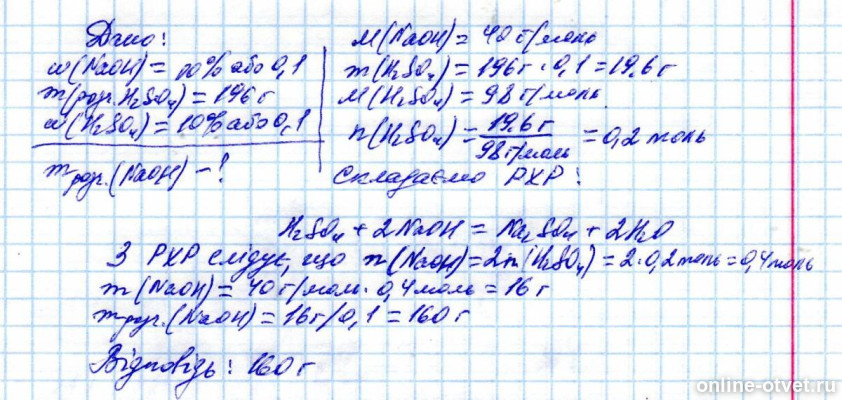 Дано:
w(NaOH) = 10% або 0,1
m(розч. H₂SO₄) = 196 г
w(H₂SO₄) = 10% або 0,1
mрозч.(NaOH) - ?
M(NaOH) = 40 г/моль
m(H₂SO₄) = 196г · 0,1 = 19,6 г
M(H₂SO₄) = 98 г/моль
n(H₂SO₄) = 19,6 г / 98 г/моль = 0,2 моль
Складаємо РХР:
H₂SO₄ + 2NaOH = Na₂SO₄ + 2H₂O
З РХР слідує, що n(NaOH) = 2n(H₂SO₄) = 2·0,2 моль = 0,4 моль
m(NaOH) = 40 г/моль · 0,4 моль = 16 г
mрозч.(NaOH) = 16г/0,1 = 160 г
Відповідь: 160 г
online-otvet.ru